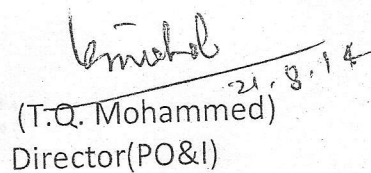 21.8.14
(T.Q. Mohammed)
Director(PO&I)